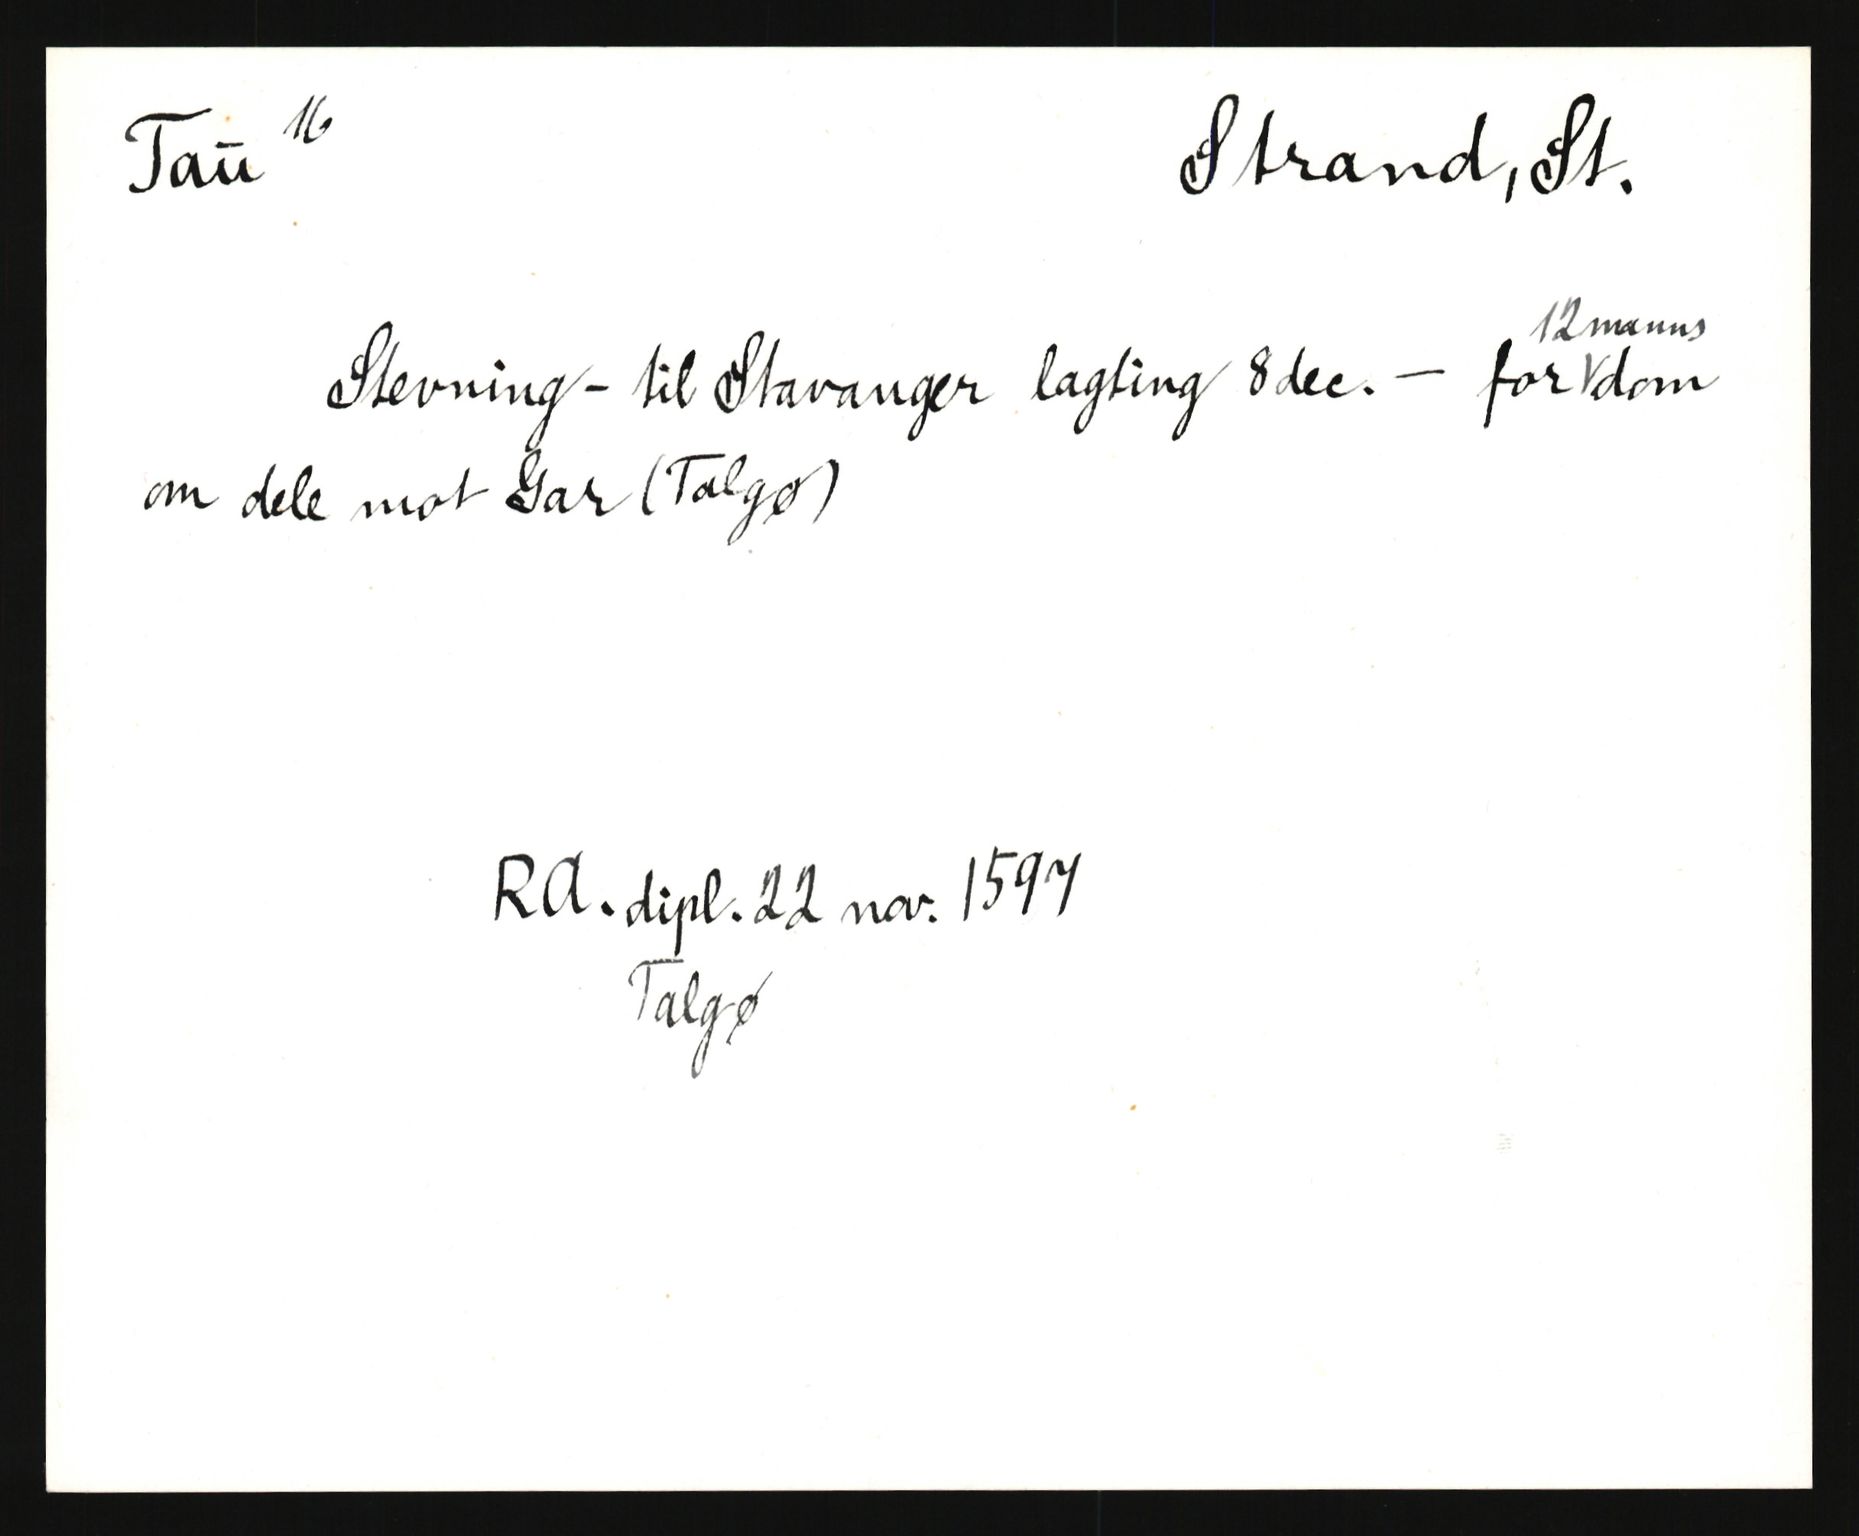 Tau 16 Strand, St.
Stevning - til Stavanger lagting 8 dec. — for 12 manns dom
om dele mot Gar (Talgø)
RA. dipl. 22 nov. 1597
Talgø